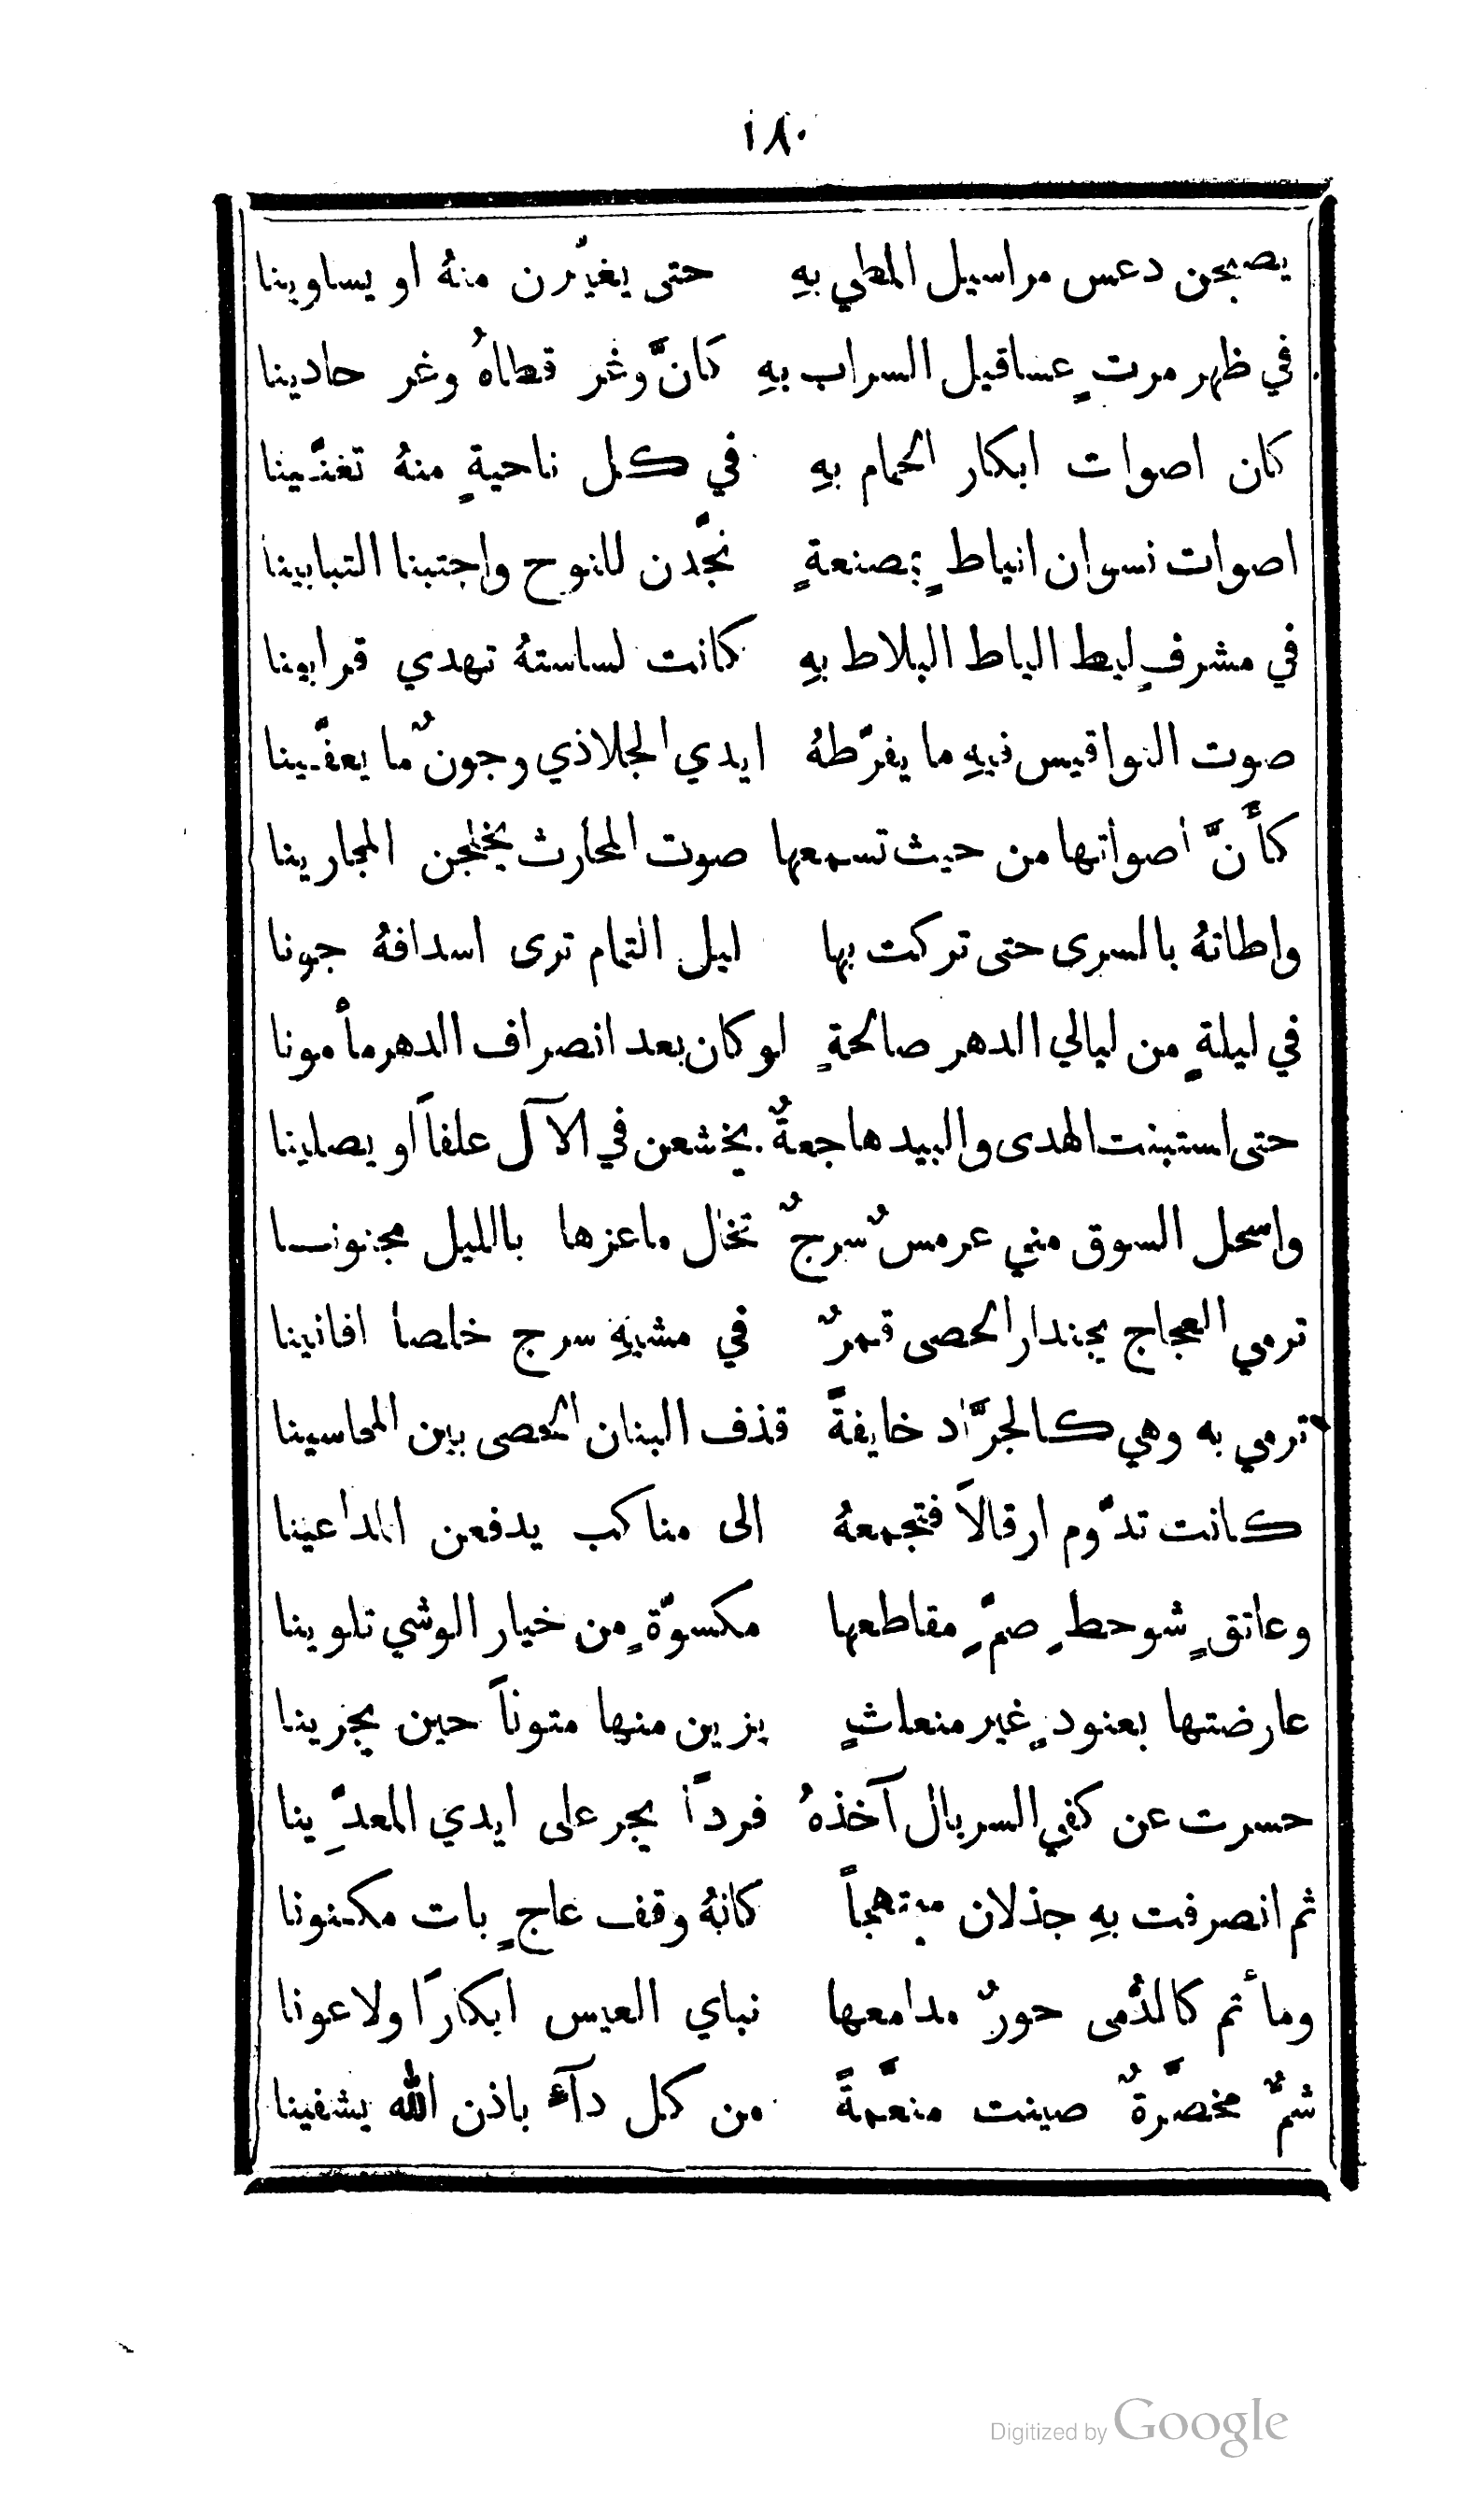 ١٨٠
يصبحن دعس مراسيل المطي بهِ حتى يغيّرن منهُ او يساوينا
في ظهر مرتٍ عساقيل السراب بهِ كانَّ وغر قطاهُ وغر حادينا
كان اصوات ابكار الحمام بهِ في كل ناحيةٍ منهُ تغنّينا
اصوات نسوان انباطٍ بصنعةٍ نجّدن للنوح واجتبنا التبابينا
في مشرفٍ ليط الياط البلاط بهِ كانت لساستهُ تهدي قرابينا
صوت النواقيس فيهِ ما يفرّطهُ ايدي الجلاذي وجونٌ ما يعفّينا
كأنَّ اصواتها من حيث تسمعها صوت المحارث يخلجن المجارينا
واطاتهُ بالسرى حتى تركت بها ليل التمام ترى اسدافهُ جونا
في ليلةٍ من ليالي الدهر صالحةٍ لو كان بعد انصراف الدهر مأمونا
حتى استبنت الهدى والبيد هاجعةٌ يخشعن في الآل علفاً او يصلينا
واسحل السوق مني عرمسٌ سرجٌ تخال ماعزها بالليل مجنونا
ترمي العجاج بجندار الحصى قمرٌ في مشيهِ سرج خلصا افانينا
ترمي به وهي كالجرّاد خايفةً قذف البنان الحصى بين المحاسينا
كانت تدوّم ارقالاً فتجمعهُ الى مناكب يدفعن المداعينا
وعاتقٍ شوحطٍ صمٍّ مقاطعها مكسوّةٍ من خيار الوشي تلوينا
عارضتها بعنودٍ غير منعلثٍ يزين منها متوناً حين يجرينا
حسرت عن كفي السربال آخذهُ فرداً يجر على ايدي المعدِّينا
ثم انصرفت بهِ جذلان مبتهجاً كانهُ وقف عاجٍ بات مكنونا
ومأتم كالدُمى حورٌ مدامعها نباي العيس ابكارًا ولا عونا
شمٌّ مخصّرةٌ صينت منعّمةً من كل دآء باذن الله يشفينا
Digitized by Google